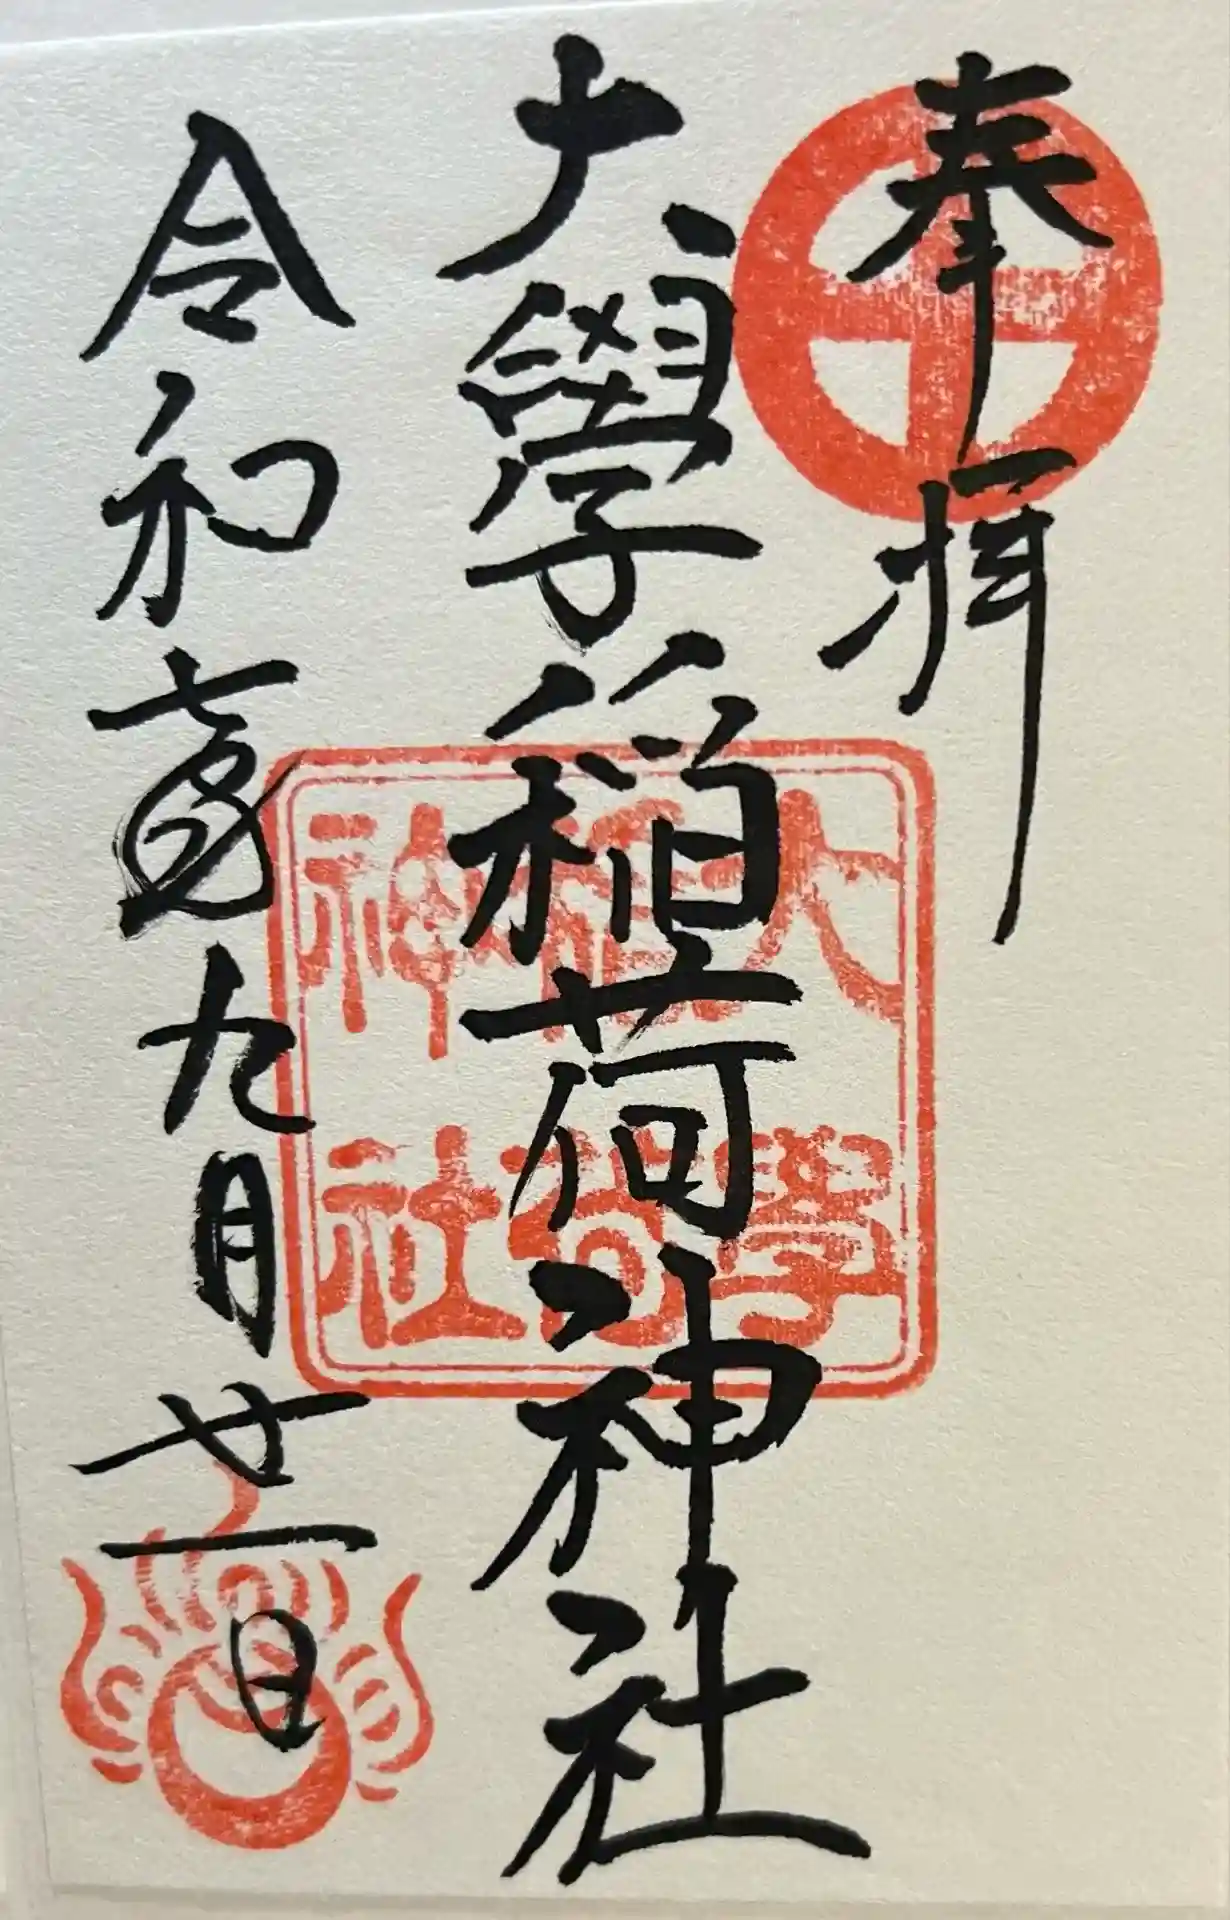 奉拝
大學稲荷神社
令和 九月廿一日
大學
稲荷
神社